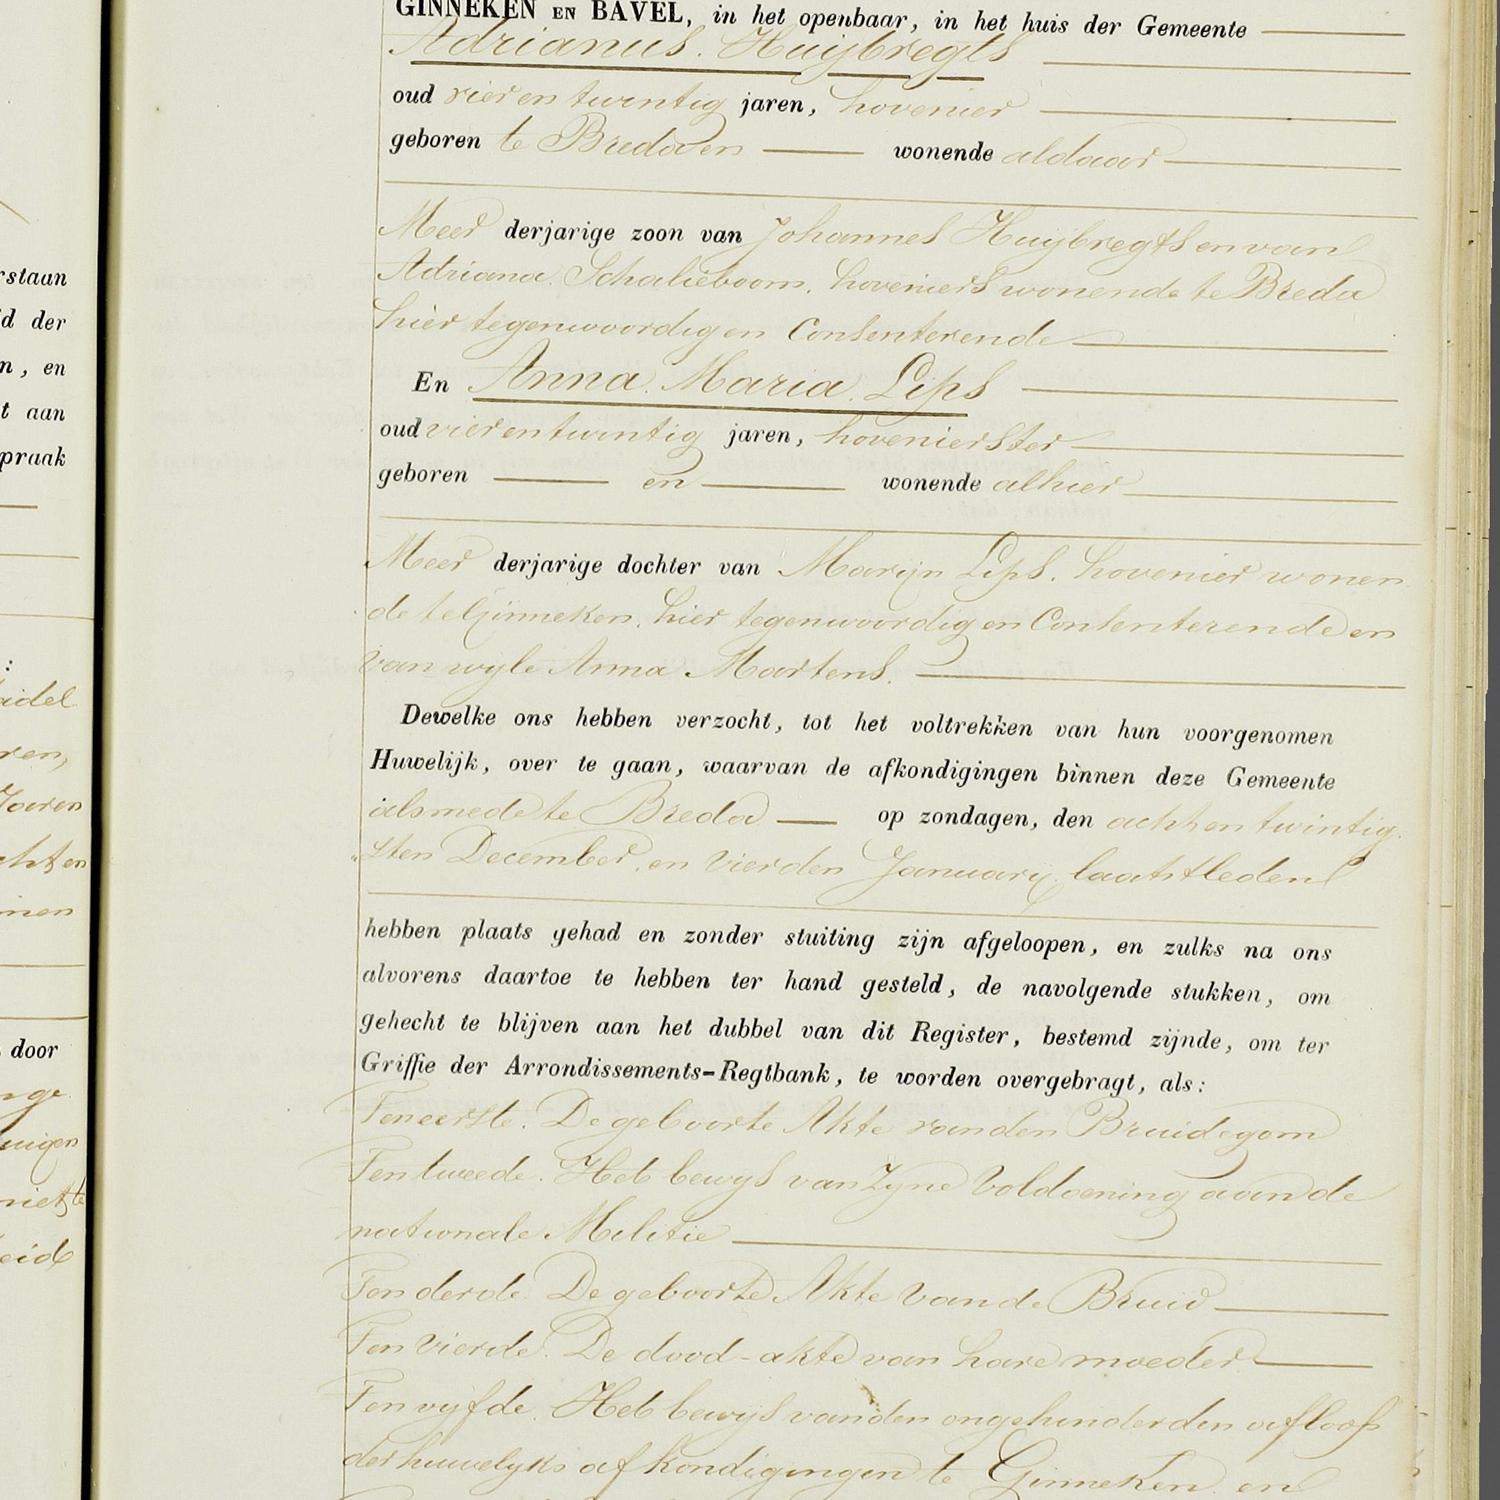 GINNEKEN EN BAVEL, in het openbaar, in het huis der Gemeente
Adrianus Huijbregts
oud vier en twintig jaren, hovenier
geboren te Breda en wonende aldaar
Meer derjarige zoon van Johannes Huijbregts en van
Adriana Schalieboom, hoveniers wonende te Breda
hier tegenwoordig en Consenterende
En Anna Maria Lips
oud vier en twintig jaren, hovenierster
geboren en wonende alhier
Meer derjarige dochter van Marijn Lips, hovenier wonen
de te Ginneken, hier tegenwoordig en Consenterende en
van wyle Anna Martens.
Dewelke ons hebben verzocht, tot het voltrekken van hun voorgenomen
Huwelijk, over te gaan, waarvan de afkondigingen binnen deze Gemeente
alsmede te Breda op zondagen, den acht en twintig
sten December, en vierden January laatstleden
hebben plaats gehad en zonder stuiting zijn afgeloopen, en zulks na ons
alvorens daartoe te hebben ter hand gesteld, de navolgende stukken, om
gehecht te blijven aan het dubbel van dit Register, bestemd zijnde, om ter
Griffie der Arrondissements-Regtbank, te worden overgebragt, als:
Ten eerste. De geboorte Akte van den Bruidegom
Ten tweede. Het bewys van zyne Voldoening aan de
nationale Militie
Ten derde. De geboorte Akte van de Bruid
Ten Vierde. De dood-akte van hare moeder
Ten vyfde. Het bewys van den ongehinderden afloop
der huwelyks afkondigingen te Ginneken en
rstaan
d der
n, en
t aan
praak
:
door